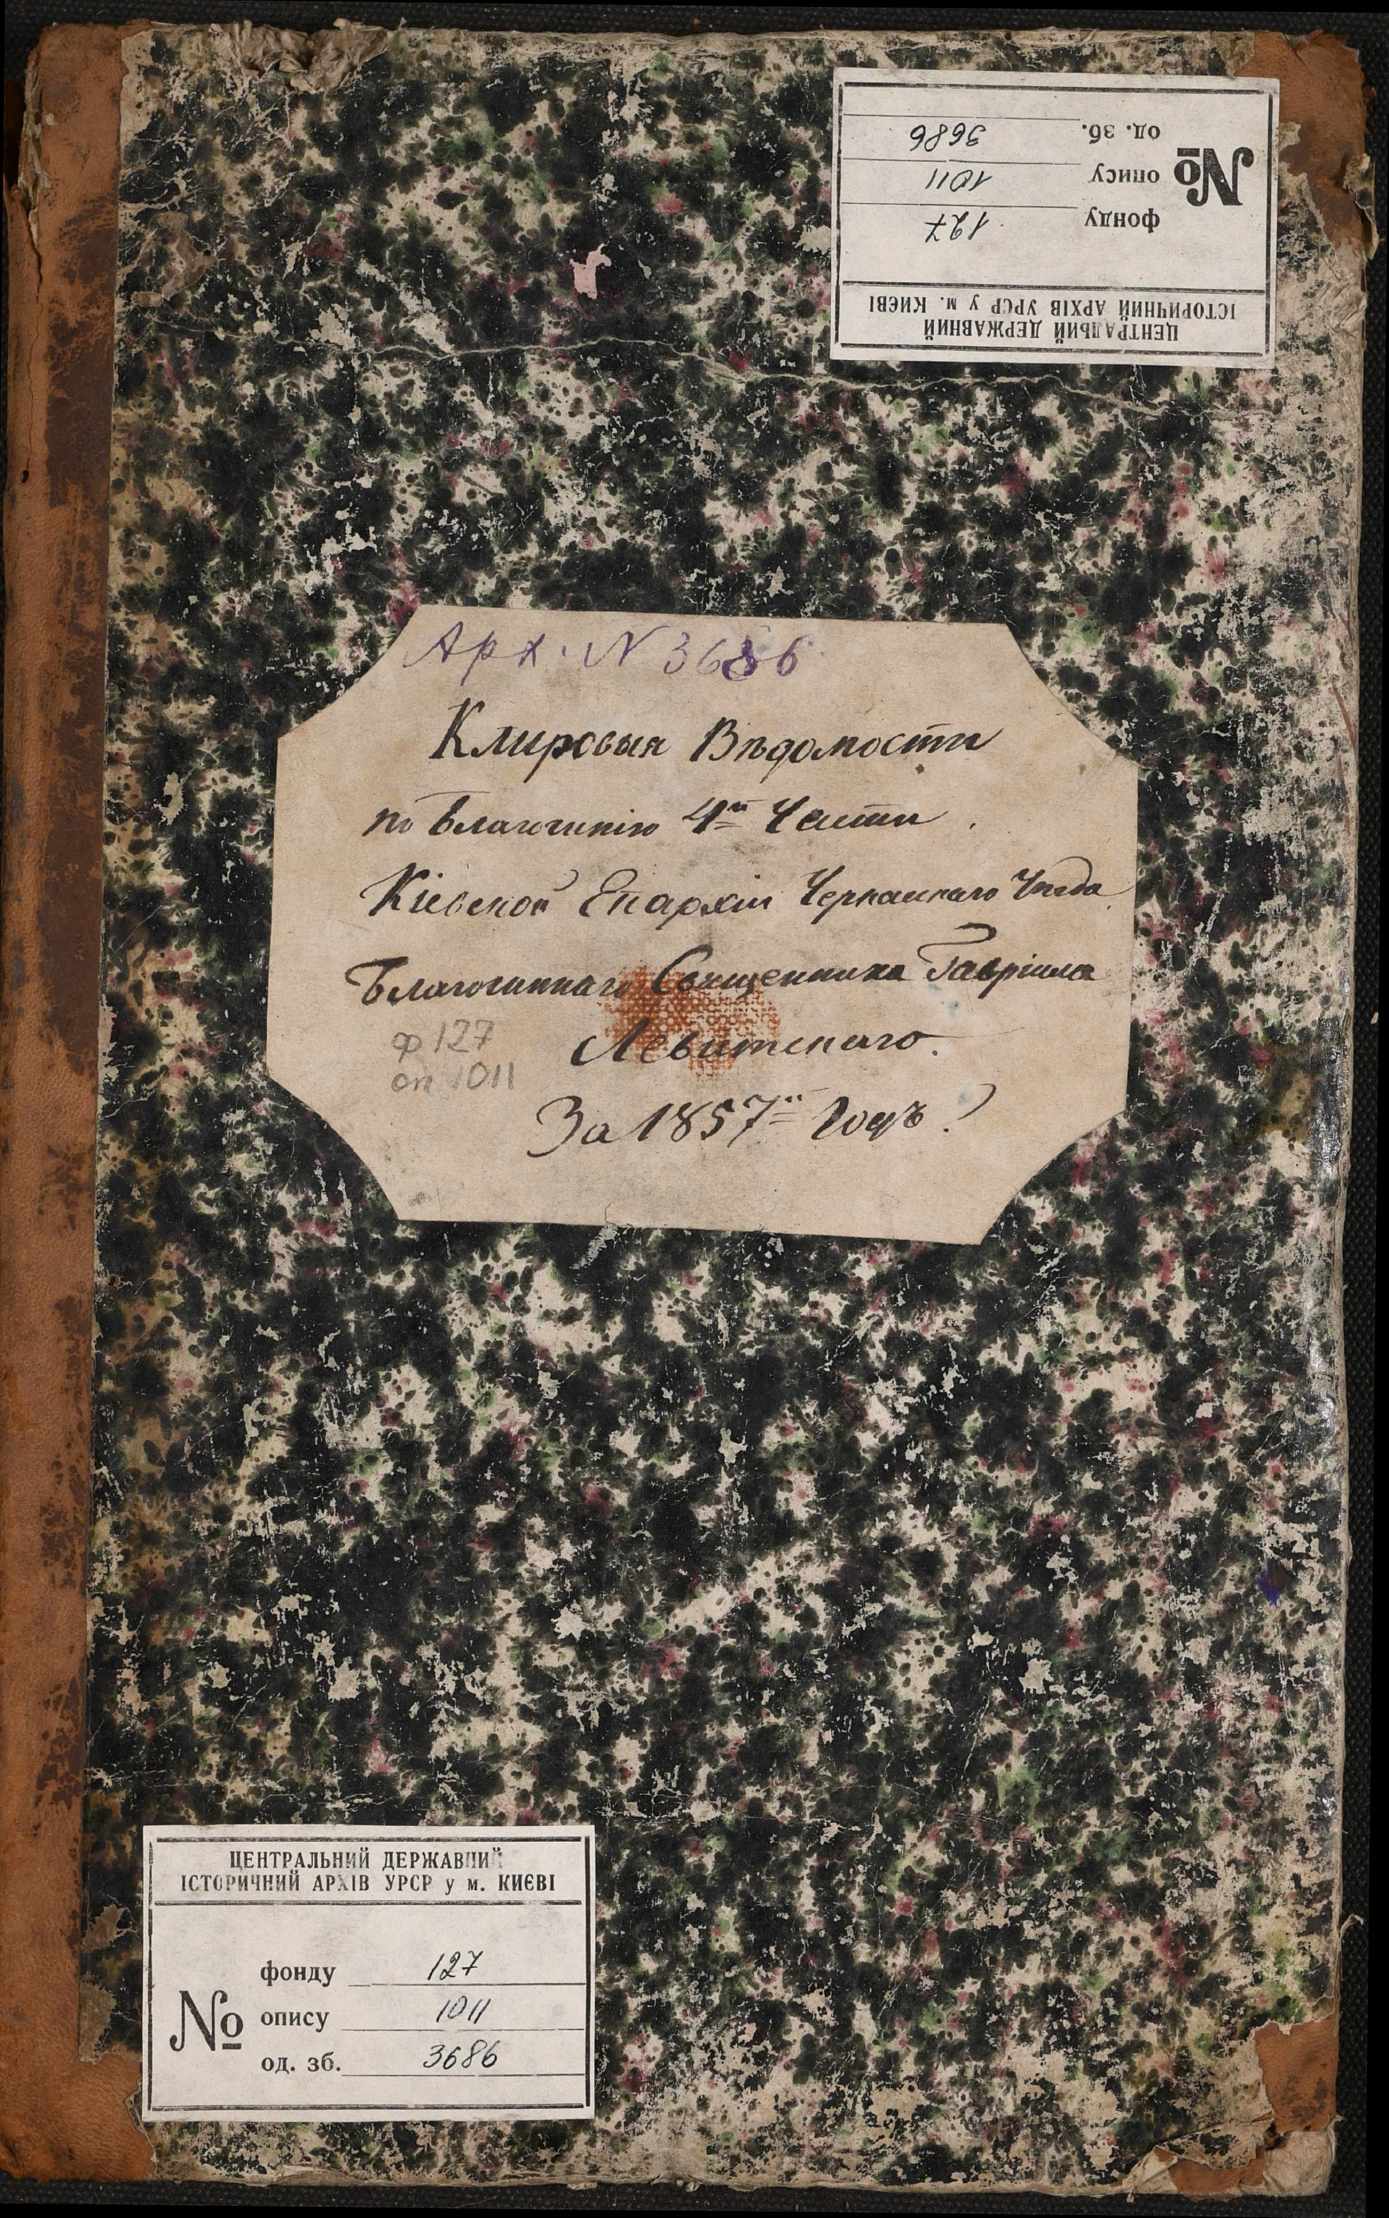 ЦЕНТРАЛЬНИЙ ДЕРЖАВНИЙ
ІСТОРИЧНИЙ АРХІВ УРСР у м. КИЄВІ
№
фонду 127
опису 1011
од. зб. 3686
Арх. N 3686
Клировыя Вѣдомости
по Благочинію 4й Части
Кіевской Епархіи Черкаскаго Уѣзда
Благочиннаго Священника Гавріила
Левитскаго.
За 1857й Годъ.
ф 127
оп 1011
ЦЕНТРАЛЬНИЙ ДЕРЖАВНИЙ
ІСТОРИЧНИЙ АРХІВ УРСР у м. КИЄВІ
№
фонду 127
опису 1011
од. зб. 3686